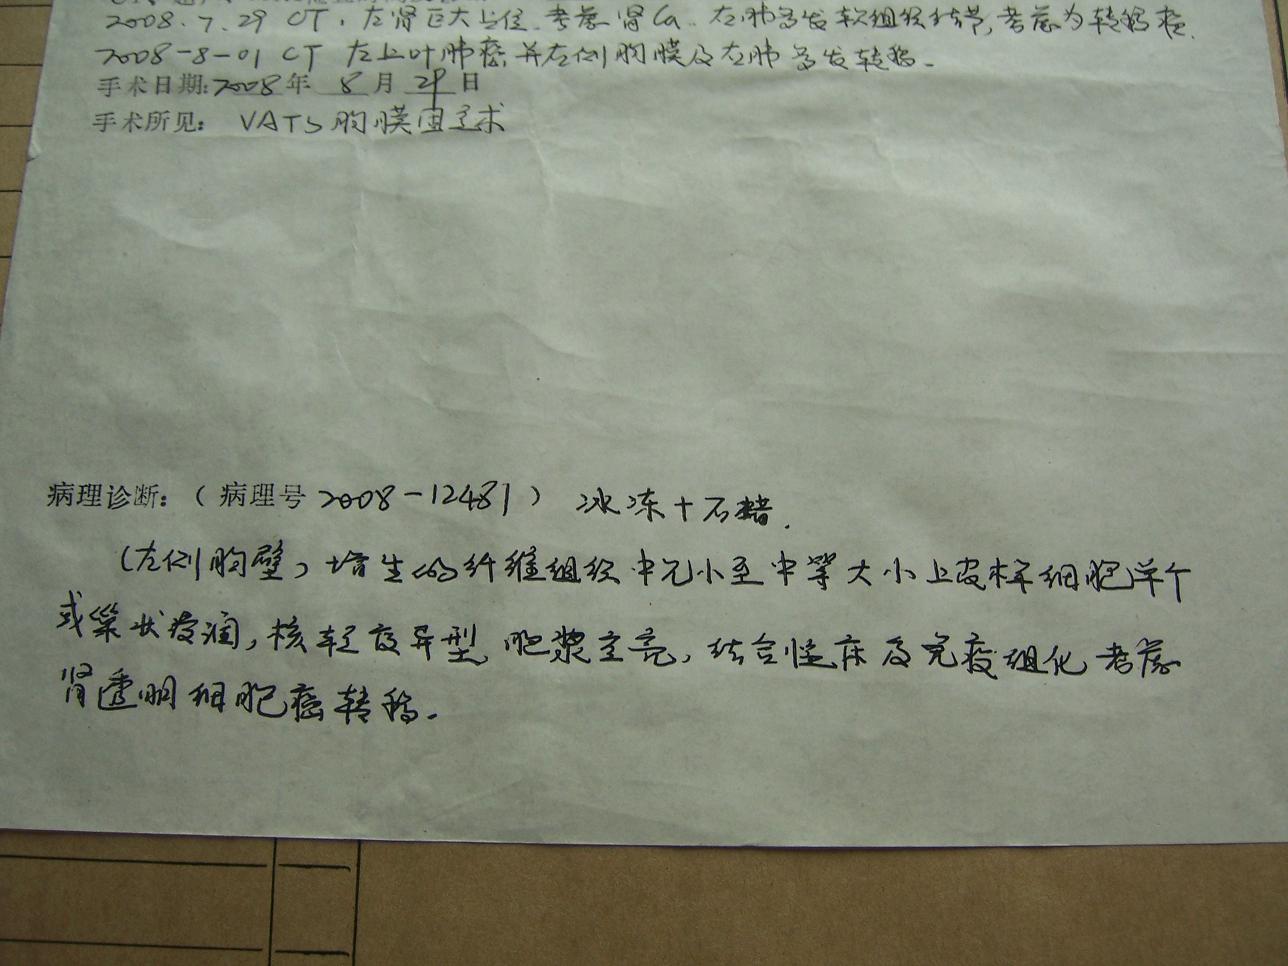 2008.7.29 CT, 左肾巨大占位, 考虑肾Ca, 左肺多发软组织结节, 考虑为转移瘤.
2008-8-01 CT 左上叶肺癌并左侧胸膜及左肺多发转移.
手术日期:2008年 8月 29日
手术所见: VATS胸膜固定术
病理诊断:(病理号 2008-12481) 冰冻+石蜡.
(左侧胸壁)增生的纤维组织中见小至中等大小上皮样细胞单个
或巢状浸润, 核轻度异型, 胞浆空亮, 结合临床及免疫组化考虑
肾透明细胞癌转移.